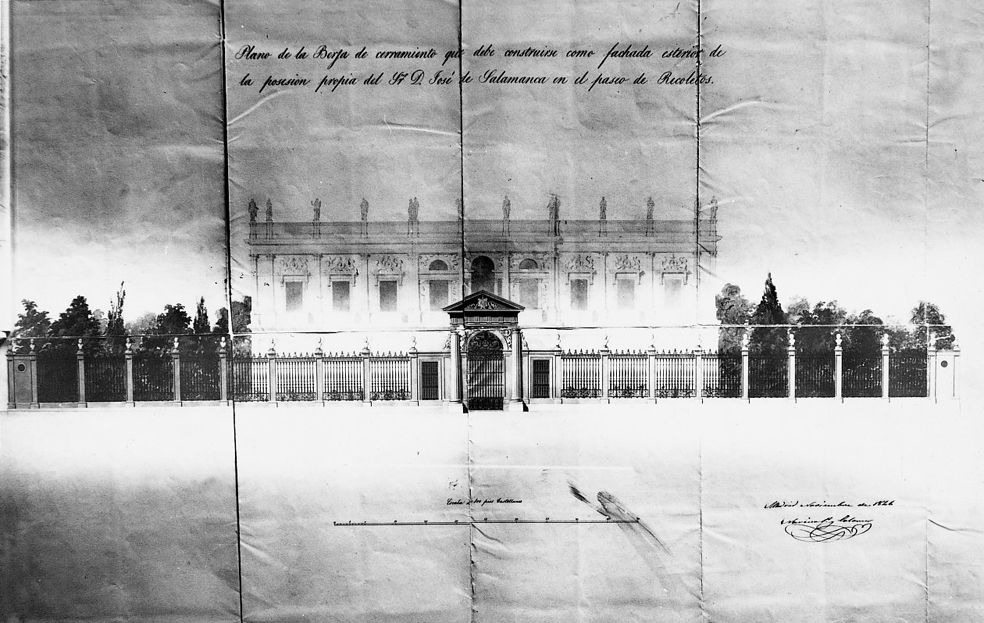 Plano de la Berja de cerramiento que debe construirse como fachada esterior de
la posesion propia del Sr. D. José de Salamanca en el paseo de Recoletos.
Escala de 100 pies Castellanos
Madrid Noviembre de 1846
Narciso P. y Colomer